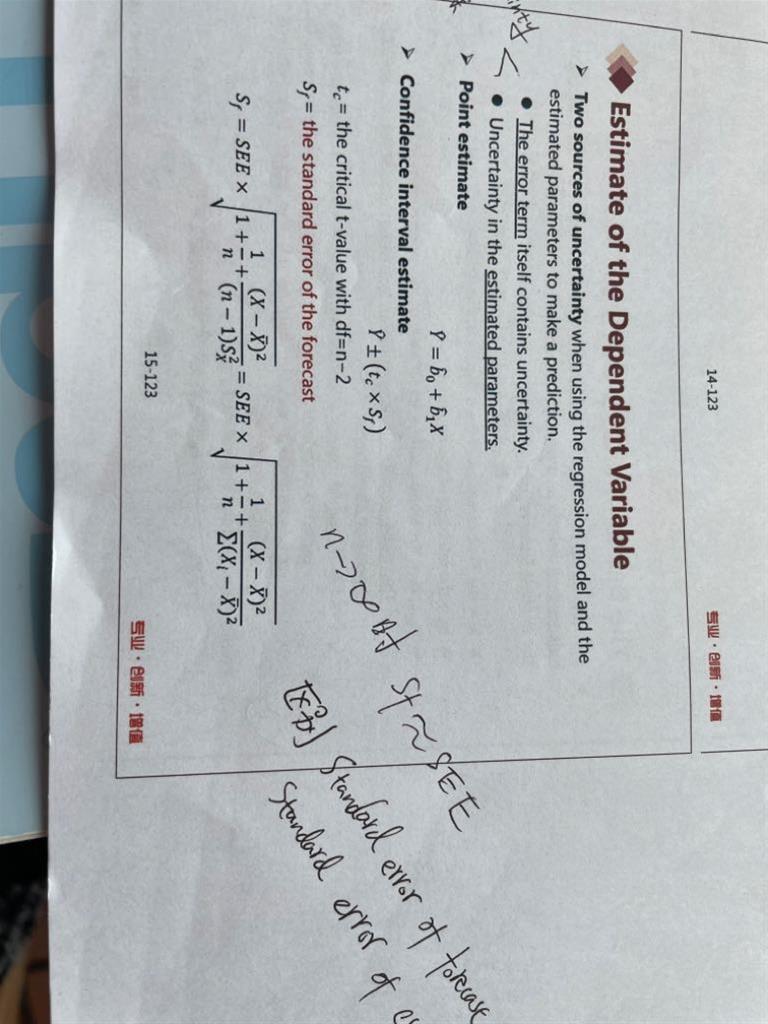 14-123
专业·创新·增值
Estimate of the Dependent Variable
➢ Two sources of uncertainty when using the regression model and the
estimated parameters to make a prediction.
● The error term itself contains uncertainty.
● Uncertainty in the estimated parameters.
➢ Point estimate
Ŷ = b̂₀ + b̂₁X
➢ Confidence interval estimate
Ŷ ± (t_c × S_f)
t_c = the critical t-value with df=n−2
S_f = the standard error of the forecast
S_f = SEE × √(1 + 1/n + (X − X̄)²/((n − 1)S_X²)) = SEE × √(1 + 1/n + (X − X̄)²/∑(X_i − X̄)²)
n→∞时 Sf ≈ SEE
区分 Standard error of forecast
Standard error of
15-123
专业·创新·增值